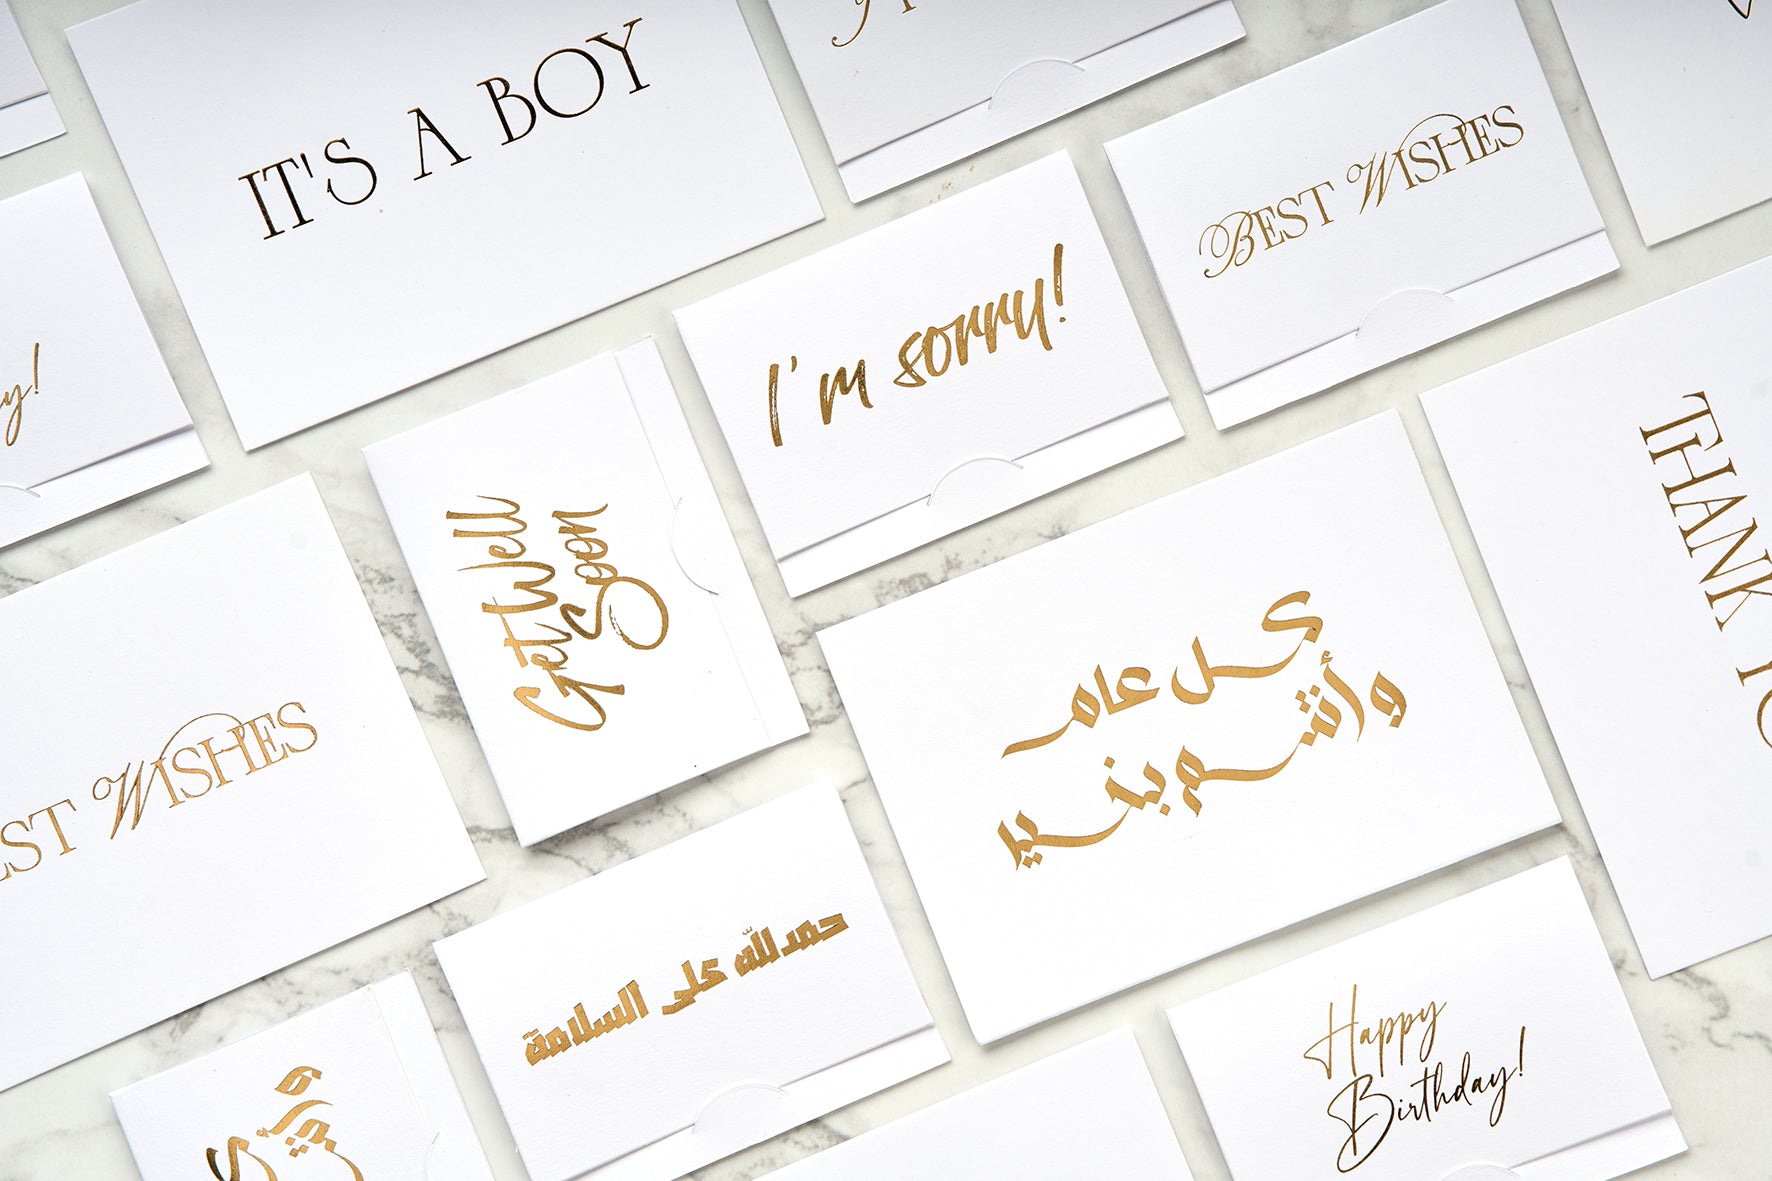 IT'S A BOY
BEST WISHES
I'm sorry!
Get Well
Soon
THANK
كل عام
وأنتم بخير
WISHES
حمدلله على السلامة
Happy
Birthday!